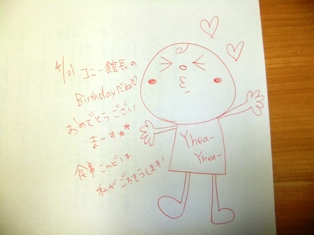 4/01 コニー館長の
Birthdayだね♡
おめでとうござい
まーす***
食事 こんどは
私がごちそうします!
Yhoa-
Yhoa-